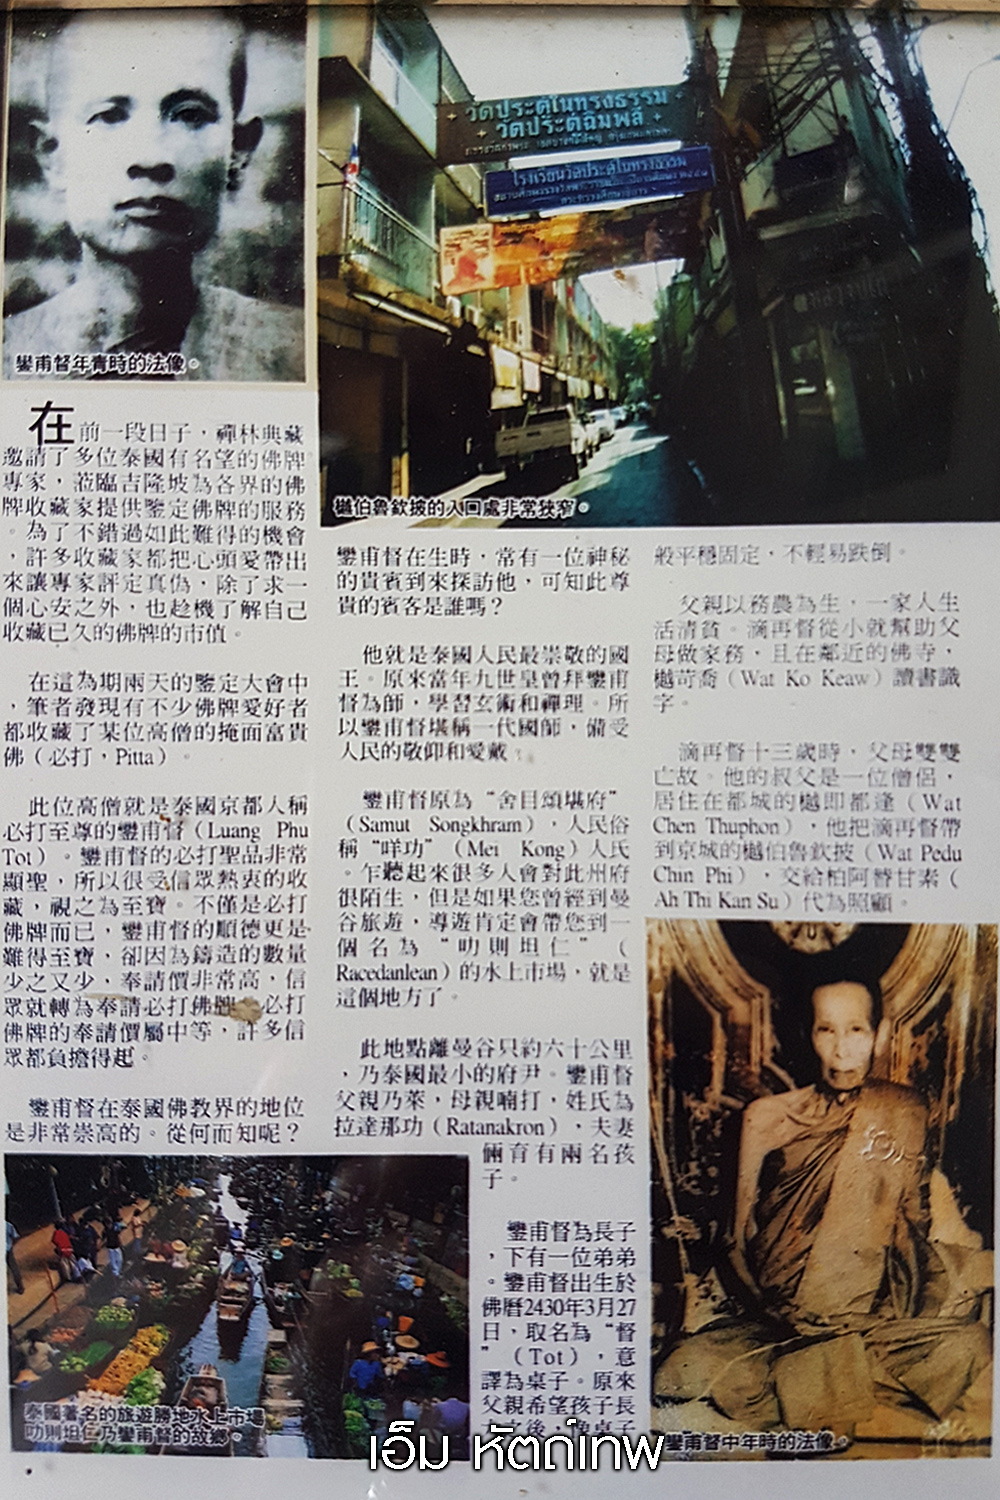 鑾甫督年青時的法像。
วัดประดู่ในทรงธรรม
วัดประดู่ฉิมพลี
โรงเรียนวัดประดู่ในทรงธรรม
樾伯魯欽披的入口處非常狹窄。
在前一段日子，禪林典藏
邀請了多位泰國有名望的佛牌
專家，蒞臨吉隆坡為各界的佛
牌收藏家提供鑒定佛牌的服務
。為了不錯過如此難得的機會
，許多收藏家都把心頭愛帶出
來讓專家評定真偽，除了求一
個心安之外，也趁機了解自己
收藏已久的佛牌的市值。
在這為期兩天的鑒定大會中
，筆者發現有不少佛牌愛好者
都收藏了某位高僧的掩面富貴
佛（必打，Pitta）。
此位高僧就是泰國京都人稱
必打至尊的鑾甫督（Luang Phu
Tot）。鑾甫督的必打聖品非常
顯聖，所以很受信眾熱衷的收
藏，視之為至寶。不僅是必打
佛牌而已，鑾甫督的順德更是
難得至寶，卻因為鑄造的數量
少之又少，奉請價非常高，信
眾就轉為奉請必打佛牌 必打
佛牌的奉請價屬中等，許多信
眾都負擔得起。
鑾甫督在泰國佛教界的地位
是非常崇高的。從何而知呢？
鑾甫督在生時，常有一位神秘
的貴賓到來探訪他，可知此尊
貴的賓客是誰嗎？
他就是泰國人民最崇敬的國
王。原來當年九世皇曾拜鑾甫
督為師，學習玄術和禪理。所
以鑾甫督堪稱一代國師，備受
人民的敬仰和愛戴。
鑾甫督原為“舍目頌堪府”
（Samut Songkhram），人民俗
稱“咩功”（Mei Kong）人氏
。乍聽起來很多人會對此州府
很陌生，但是如果您曾經到曼
谷旅遊，導遊肯定會帶您到一
個名為“叻則坦仁”（
Racedanlean）的水上市場，就是
這個地方了。
此地點離曼谷只約六十公里
，乃泰國最小的府尹。鑾甫督
父親乃萊，母親喃打，姓氏為
拉達那功（Ratanakron），夫妻
倆育有兩名孩
子。
鑾甫督為長子
，下有一位弟弟
。鑾甫督出生於
佛曆2430年3月27
日，取名為“督
”（Tot），意
譯為桌子。原來
父親希望孩子長
大之後，像桌子
般平穩固定，不輕易跌倒。
父親以務農為生，一家人生
活清貧。滴再督從小就幫助父
母做家務，且在鄰近的佛寺，
樾苛喬（Wat Ko Keaw）讀書識
字。
滴再督十三歲時，父母雙雙
亡故。他的叔父是一位僧侶，
居住在都城的樾即都逢（Wat
Chen Thuphon），他把滴再督帶
到京城的樾伯魯欽披（Wat Pedu
Chin Phi），交給柏阿替甘素（
Ah Thi Kan Su）代為照顧。
泰國著名的旅遊勝地水上市場
叻則坦仁乃鑾甫督的故鄉。
鑾甫督中年時的法像。
เอ็ม หัตถ์เทพ